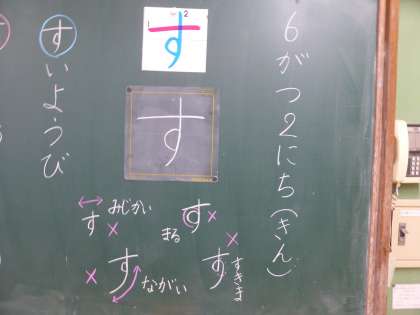 6がつ2にち(きん)
1 2
す
す
すいようび
みじかい
す×
まる
す×
×すながい
×すすきま